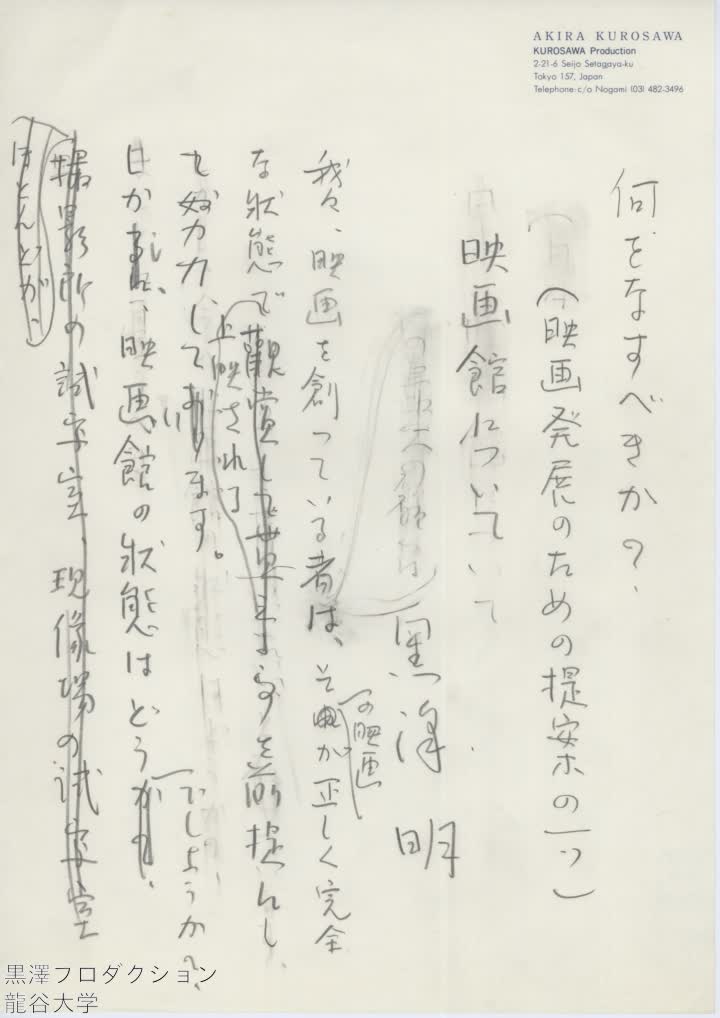 AKIRA KUROSAWA
KUROSAWA Production
2-21-6 Seijo Setagaya-ku
Tokyo 157, Japan
Telephone:c/o Nogami (03) 482-3496
何をなすべきか?
(映画発展のための提案の一つ)
映画館について
黒澤 明
我々、映画を創っている者は、その映画が正しく完全
な状態で上映される事を前提にし
も努力しております。
しかし、映画館の状態はどうでしょうか?
撮影所の試写室、現像場の試写室
ほとんどが、
黒澤プロダクション
龍谷大学